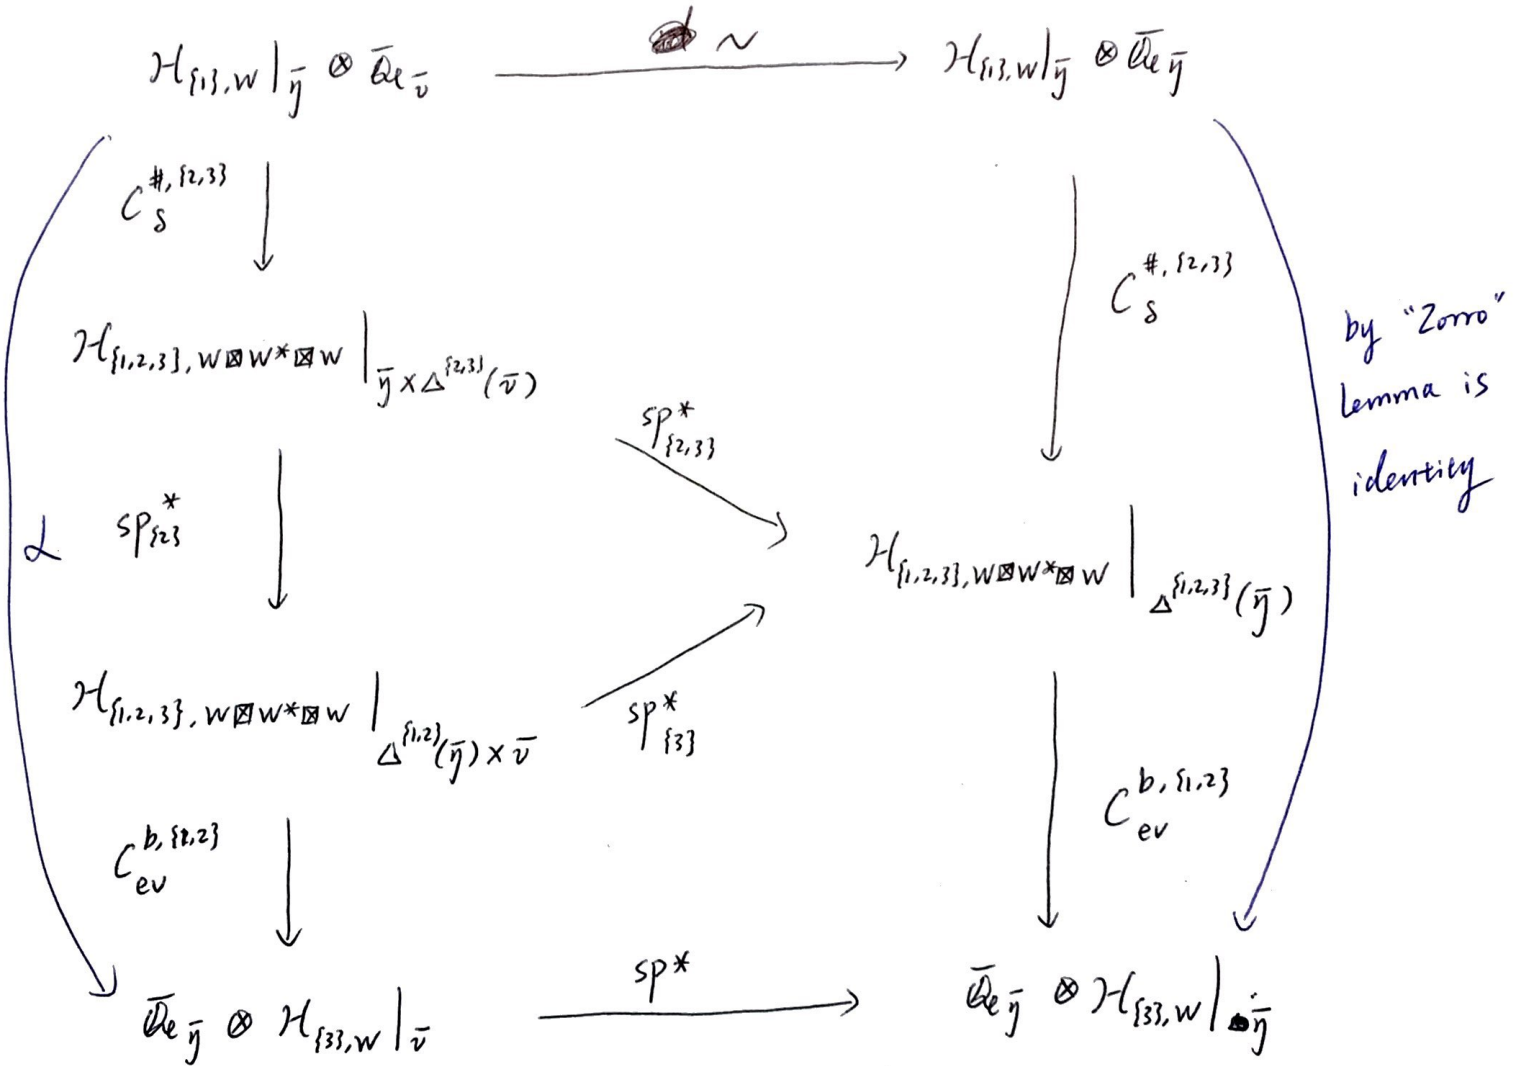 ℋ_{{1},W}|_η̄ ⊗ Q̄ℓ_ν̄
∼
ℋ_{{1},W}|_η̄ ⊗ Q̄ℓ_η̄
C_δ^{#,{2,3}}
C_δ^{#,{2,3}}
by "Zorro"
Lemma is
identity
ℋ_{{1,2,3},W⊠W*⊠W}|_{η̄×Δ^{{2,3}}(ν̄)}
sp*_{{2,3}}
α
sp*_{{2}}
ℋ_{{1,2,3},W⊠W*⊠W}|_{Δ^{{1,2,3}}(η̄)}
ℋ_{{1,2,3},W⊠W*⊠W}|_{Δ^{{1,2}}(η̄)×ν̄}
sp*_{{3}}
C_ev^{b,{1,2}}
C_ev^{b,{1,2}}
Q̄ℓ_η̄ ⊗ ℋ_{{3},W}|_ν̄
sp*
Q̄ℓ_η̄ ⊗ ℋ_{{3},W}|_η̄